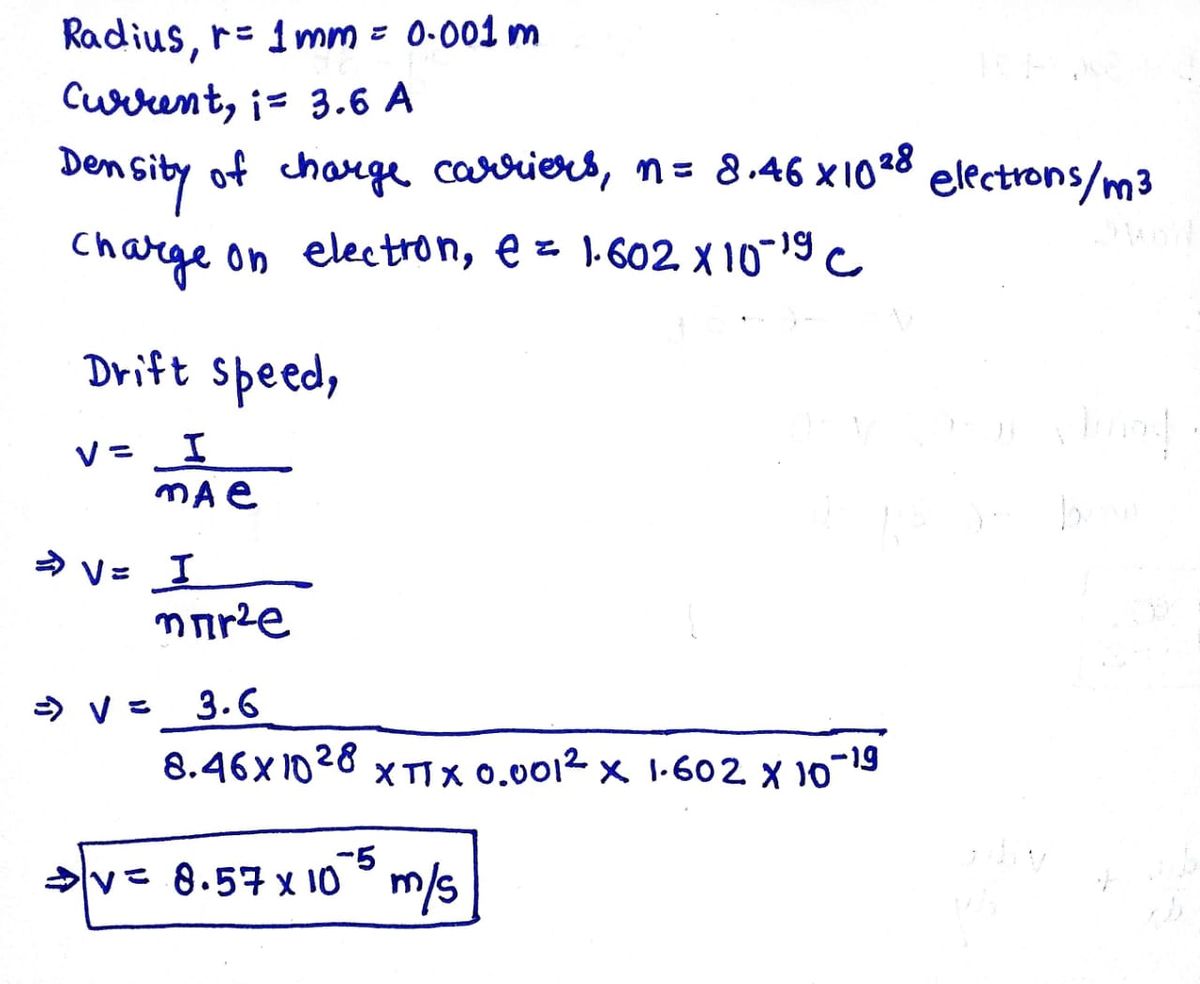 Radius, r = 1 mm = 0.001 m
Current, i = 3.6 A
Density of charge carriers, n = 8.46 × 10²⁸ electrons/m³
Charge on electron, e = 1.602 × 10⁻¹⁹ C
Drift speed,
v = I
nAe
⇒ v = I
nπr²e
⇒ v = 3.6
8.46 × 10²⁸ × π × 0.001² × 1.602 × 10⁻¹⁹
⇒ v = 8.57 × 10⁻⁵ m/s